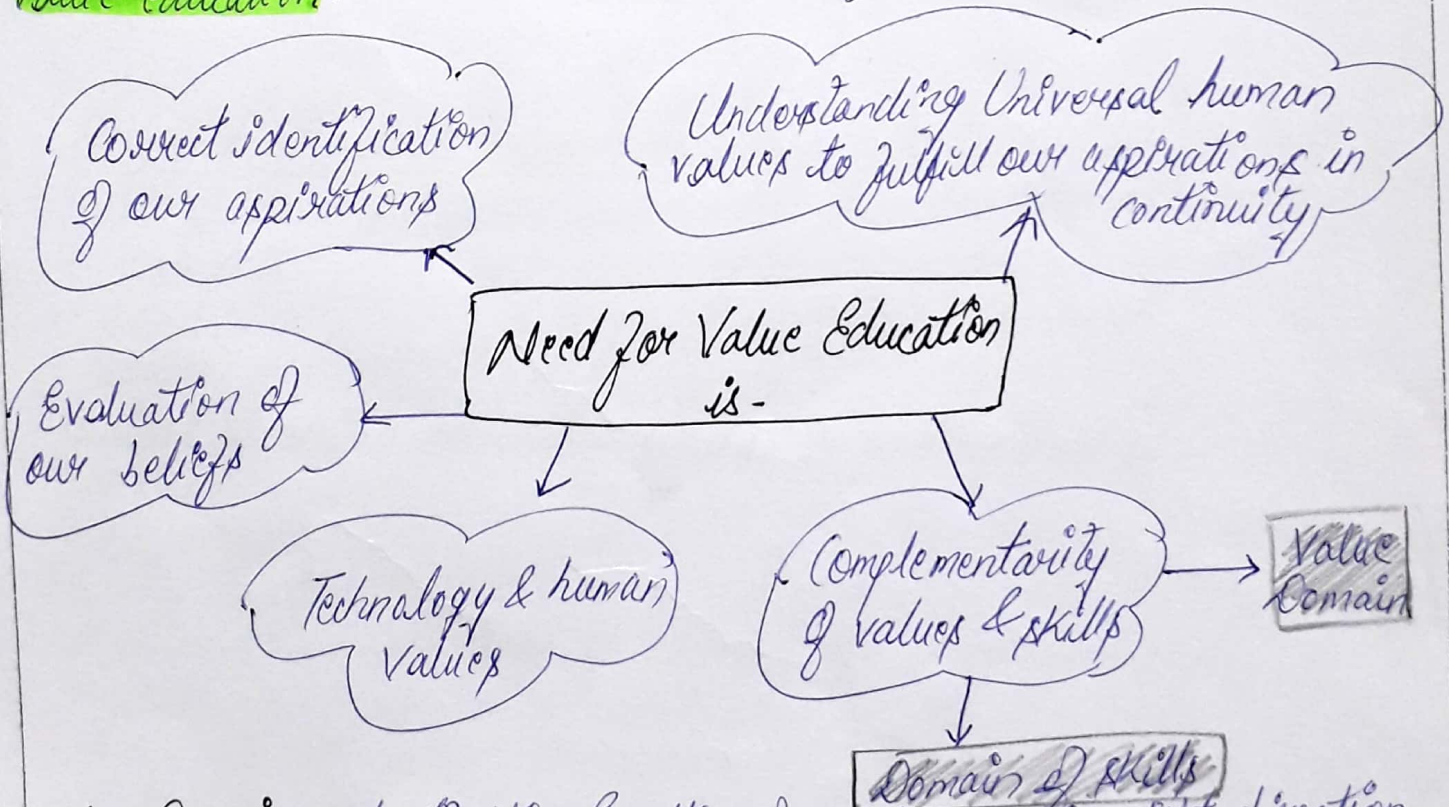 Value Education
Correct identification
of our aspirations
Understanding Universal human
values to fulfill our aspirations in
continuity
Need for Value Education
is-
Evaluation of
our beliefs
Technology & human
values
Complementarity
of values & skills
Value
Domain
Domain of skills